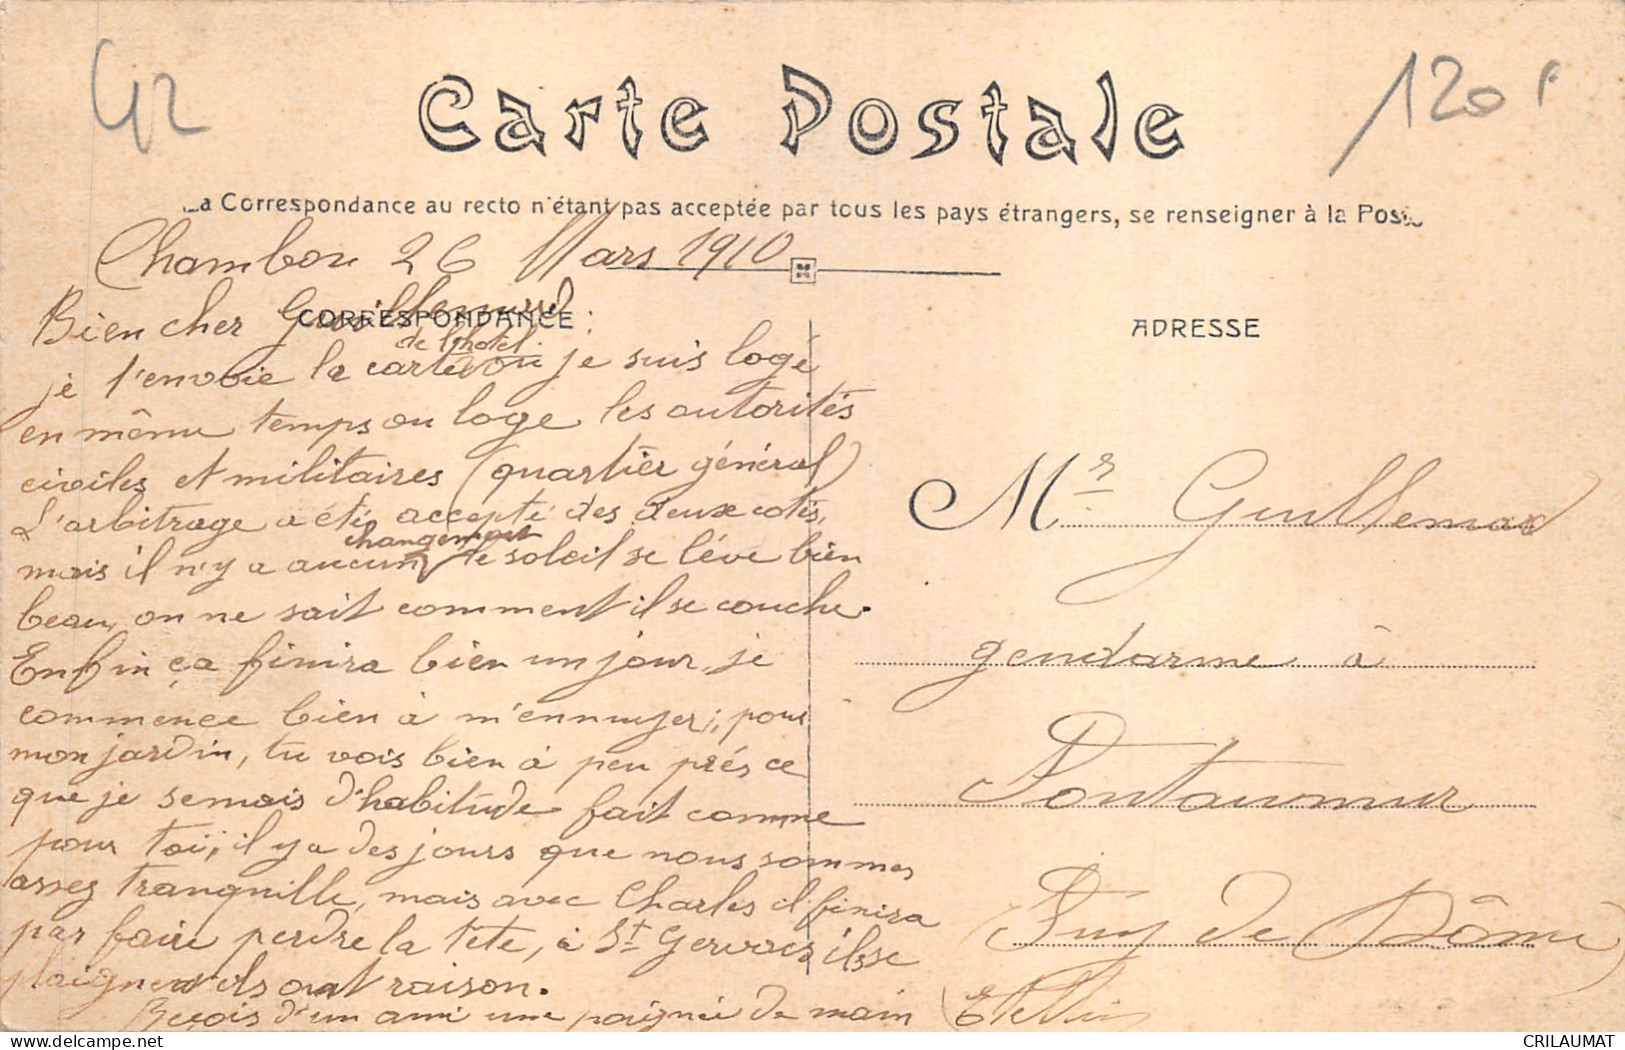 42
120 F
Carte Postale
La Correspondance au recto n'étant pas acceptée par tous les pays étrangers, se renseigner à la Poste
Chambon 26 Mars 1910
CORRESPONDANCE
ADRESSE
Bien cher Guillemard :
de l'hotel
je t'envoie la carte ou je suis logé
en même temps ou loge les autorités
civiles et militaires (quartier général)
L'arbitrage a été accepté des deux cotés,
changement
mais il n'y a aucun le soleil se léve bien
beau, on ne sait comment il se couche.
Enfin ça finira bien un jour, je
commence bien à m'ennuyer; pour
mon jardin, tu vois bien à peu prés ce
que je semais d'habitude fait comme
pour toi; il y a des jours que nous sommes
assez tranquille, mais avec Charles il finira
par faire perdre la tête, à St Gervais ils se
plaignent ils ont raison.
Reçois d'un ami une poignée de main
Mr Guillemard
gendarme à
Pontaumur
Puy de Dôme
CRILAUMAT